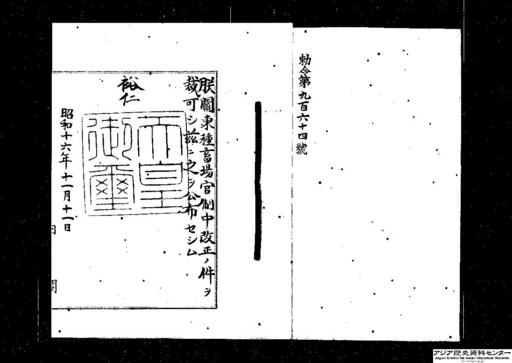 勅令第九百六十四號
朕關東種畜場官制中改正ノ件ヲ
裁可シ玆ニ之ヲ公布セシム
裕仁
天皇
御璽
昭和十六年十一月十一日
アジア歴史資料センター
Japan Center for Asian Historical Records